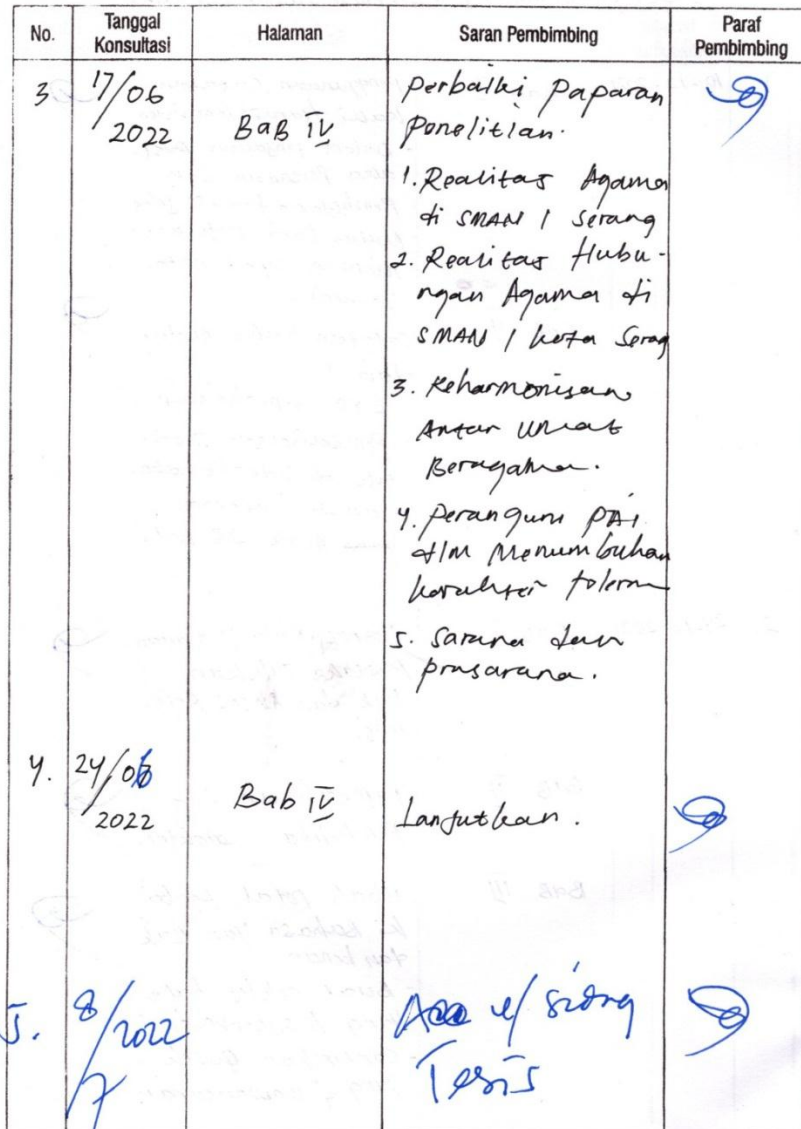 No.
Tanggal
Konsultasi
Halaman
Saran Pembimbing
Paraf
Pembimbing
3
17/06
2022
BaB IV
Perbaiki Paparan
Penelitian.
1. Realitas Agama
di SMAN 1 Serang
2. Realitas Hubu-
ngan Agama di
SMAN 1 kota Serag
3. Keharmonisan
Antar Umat
Beragama.
4. Peran guru PAI
dlm Menumbuhan
karakter toleran
5. Sarana dan
prasarana.
4.
24/06
2022
Bab IV
Lanjutkan.
5.
8/7
2022
Acc u/ Sidang
Tesis